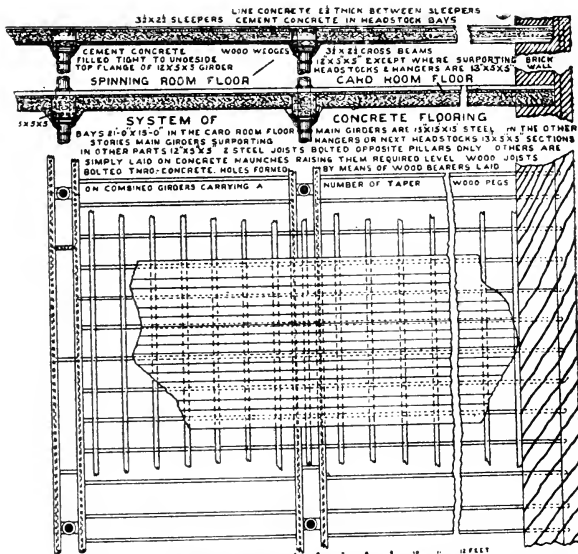 LINE CONCRETE 2½ THICK BETWEEN SLEEPERS
3½x2½ SLEEPERS CEMENT CONCRETE IN HEADSTOCK BAYS
CEMENT CONCRETE WOOD WEDGES 3½x2½ CROSS BEAMS
FILLED TIGHT TO UNDESIDE 12"x5"x5" EXCEPT WHERE SUPPORTING BRICK
TOP FLANGE OF 12x5x5 GIRDER HEADSTOCKS & HANGERS ARE 13"x5"x5" WALL
SPINNING ROOM FLOOR CARD ROOM FLOOR
5x5x5
SYSTEM OF CONCRETE FLOORING
BAYS 21-0"x15-0" IN THE CARD ROOM FLOOR MAIN GIRDERS ARE 15x15x15 STEEL IN THE OTHER
STORIES MAIN GIRDERS SUPPORTING HANGERS OR NEXT HEADSTOCKS 13x5x5 SECTIONS
IN OTHER PARTS 12"x5"x5 2 STEEL JOISTS BOLTED OPPOSITE PILLARS ONLY OTHERS ARE
SIMPLY LAID ON CONCRETE HAUNCHES RAISING THEM REQUIRED LEVEL WOOD JOISTS
BOLTED THRO' CONCRETE. HOLES FORMED BY MEANS OF WOOD BEARERS LAID
ON COMBINED GIRDERS CARRYING A NUMBER OF TAPER WOOD PEGS
12 FEET